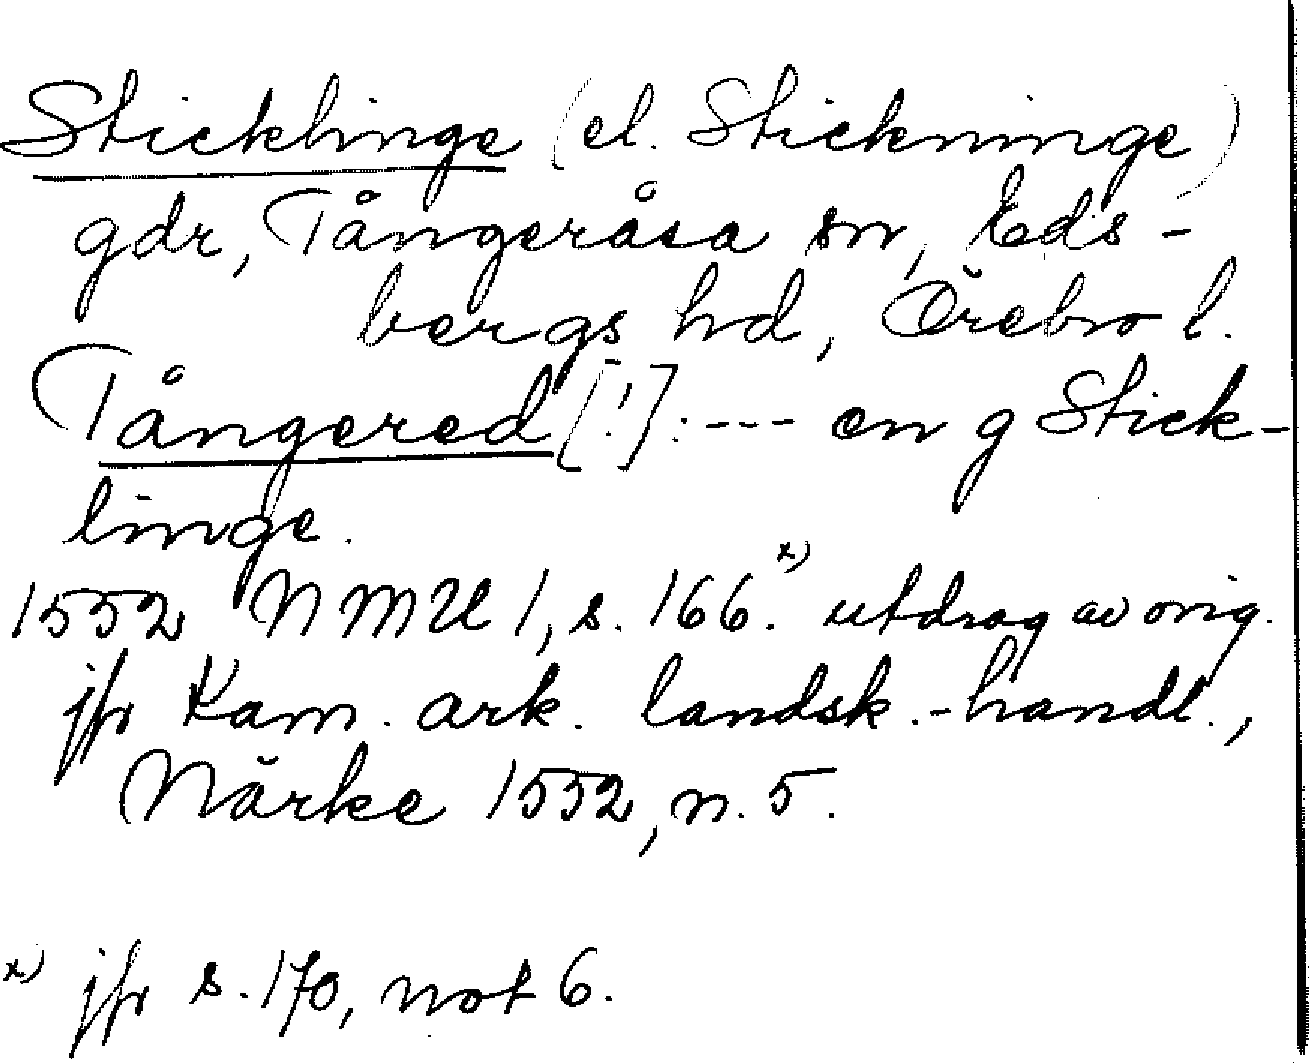 Sticklinge (el. Stickninge)
gdr, Tångeråsa sn, Eds-
bergs hd, Örebro l.
Tångered [!]: --- en g Stick-
linge.
1552 NMU 1, s. 166.x) utdrag av orig.
jfr Kam. ark. landsk.-handl.,
Närke 1552, n. 5.
x) jfr s. 170, not 6.